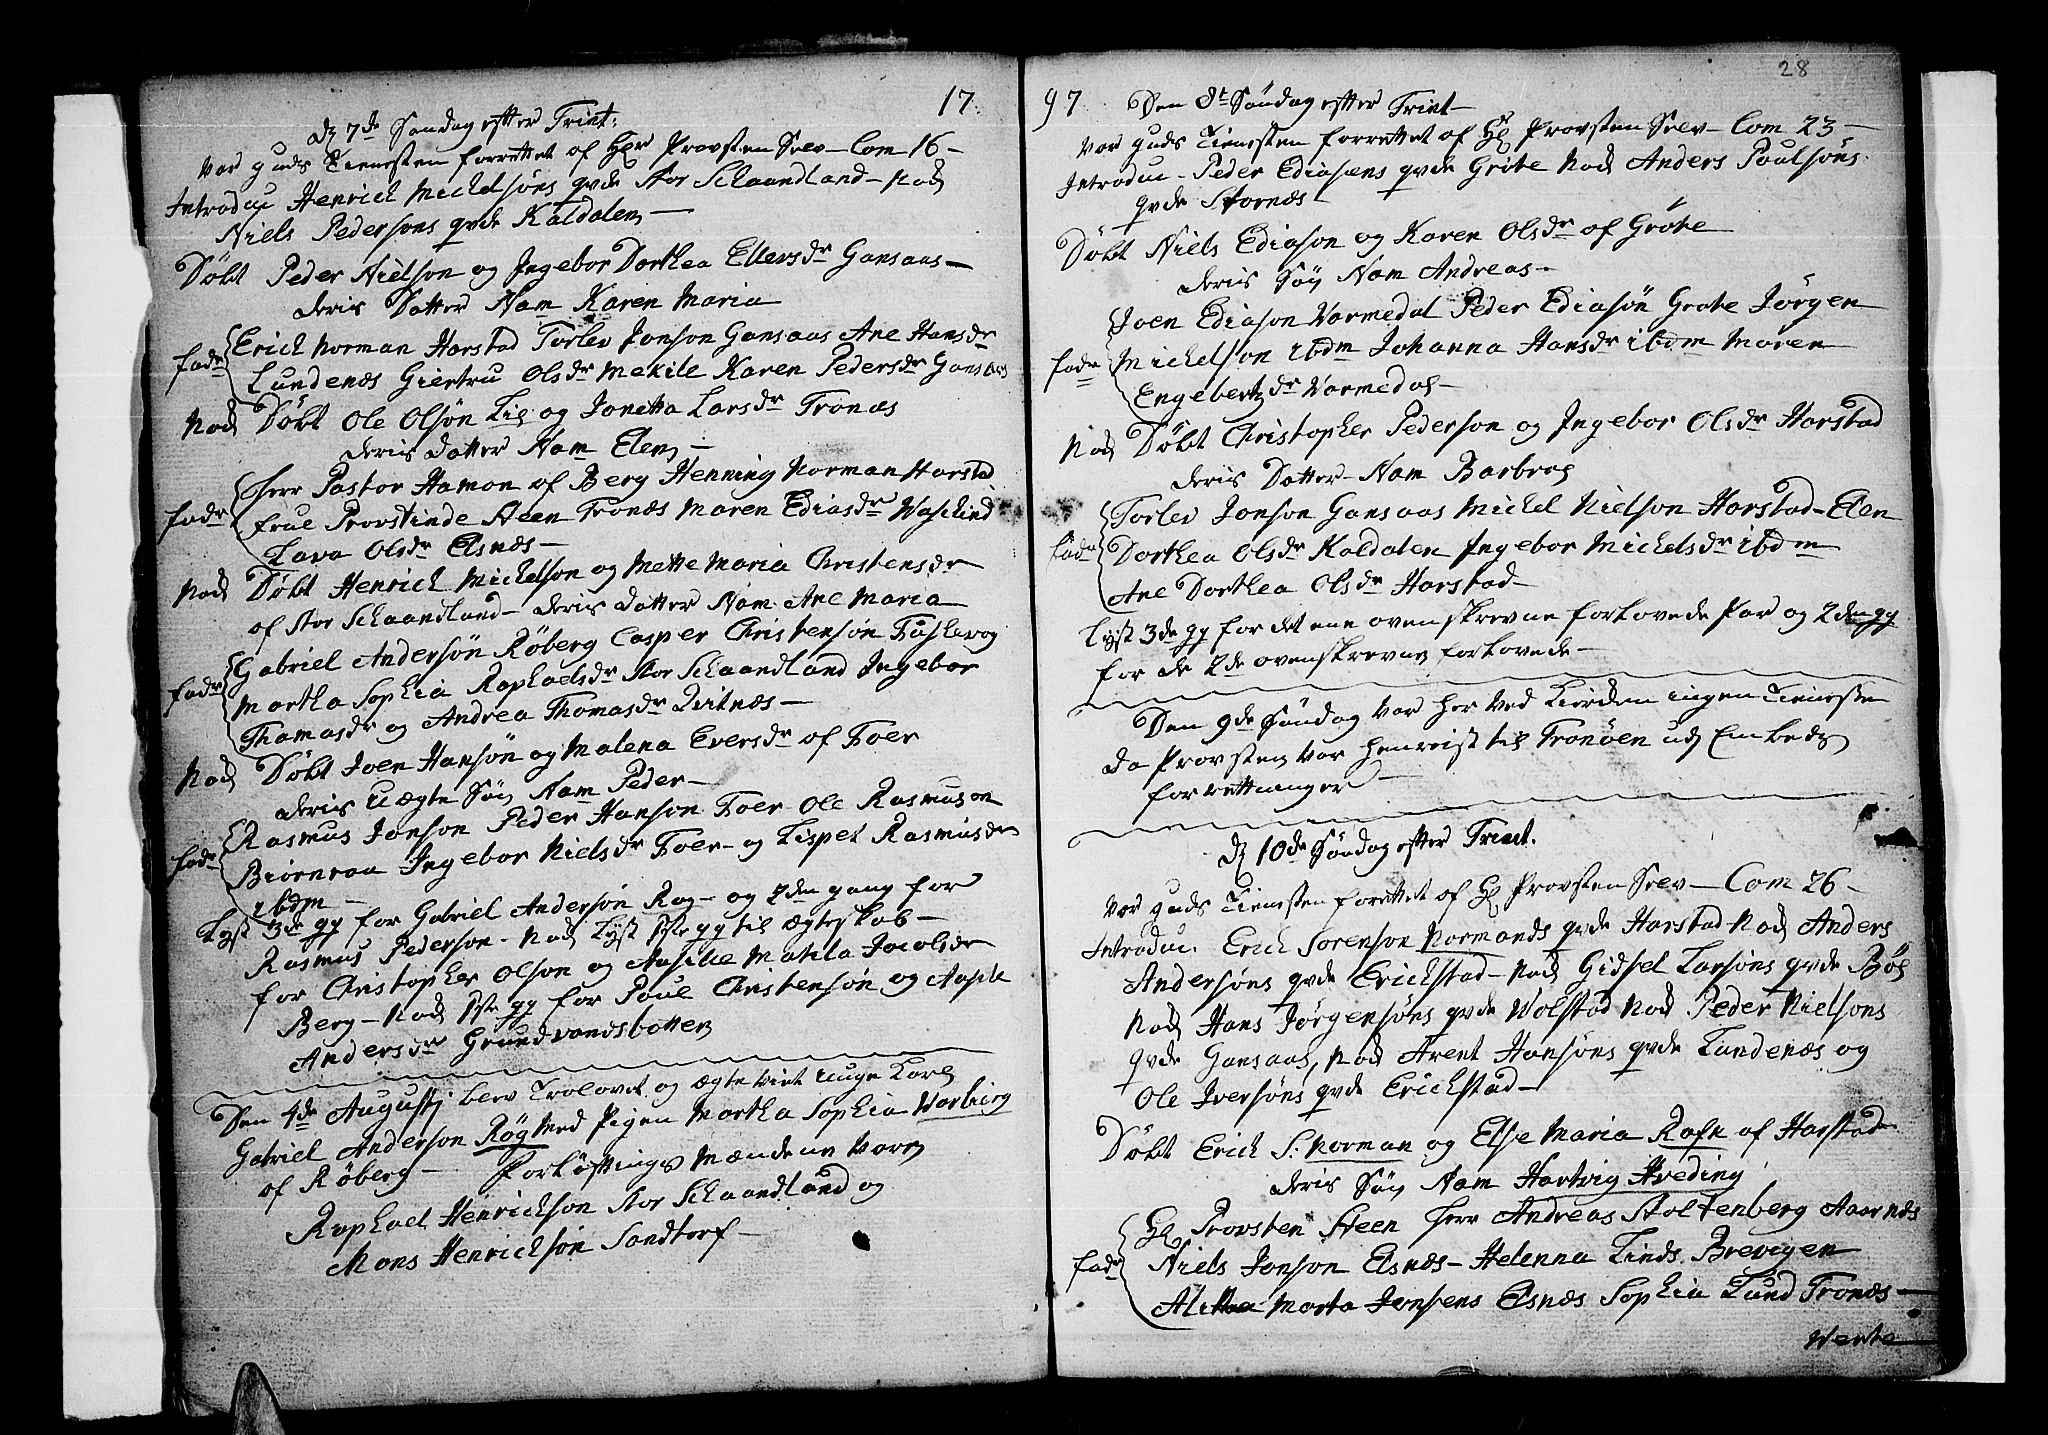 17
D 7de Søndag efter Trint:
var guds Tienesten forrettet af Hr Provsten Selv - Com 16 -
Introdu: Henrich Michelsøns qvde Stor Schaandland - Nock
Niels Pedersøns qvde Kaldalen -
Døbt Peder Nielson og Ingebor Dorthea Ellersdr Gansaas -
deris Datter Nam Karen Maria
fadr Erich Norman Harstad Torlev Jonson Gansaas Ane Hansdr
Lundenæs Giertru Olsdr Mekile Karen Pedersdr Gansaas
Nock Døbt Ole Olsøn Lil og Jonetta Larsdr Tronæs
deris datter Nam Elen -
fadr Herr Pastor Hamon af Berg Henning Norman Harstad
frue Provstinde Steen Tronæs Maren Ediasdr Waschind
Lava Olsdr Elsnæs -
Nock Døbt Henrich Michelson og Mette Maria Christensdr
af Stor Schaandland - deris datter Nam Ane Maria
fadr Gabriel Andersøn Røberg Casper Christensøn Fuskevog
Martha Sophia Raphaelsdr Stor Schaandland Ingebor
Thamasdr og Andrea Thomasdr Qvitnæs -
Nock Døbt Joen Hansøn og Malena Eversdr af Foer
deris Uægte Søn Nam Peder -
fadr Rasmus Jonson Peder Hanson Foer Ole Rasmuson
Biørnraa Ingebor Nielsdr Foer - og Lispet Rasmusdr
ibdm -
Lyst 3de gg for Gabriel Andersøn Røg - og 2den gang for
Rasmus Pederson - Nock Lyst 1ste gg til ægteskab -
for Christopher Olson og Matila Jacobsdr
Berg - Nock 1ste gg for Poul Christensøn og
Andersdr Grundvandsbotten
Den 4de Augusti blev Trolovet og ægteviet unge Karl
Gabriel Anderson Røg Med Pigen Martha Sophia Warberg
af Røberg - Forløftnings Mændene vare
Raphael Henrichson Stor Schaandland og
Mons Henrichsøn Sandtorf -
28
97
Den 8t Søndag efter Trint -
Var guds Tienesten forrettet af Hr Provsten Selv - Com 23 -
Introduc - Peder Ediasens qvde Grøte Nock Anders Poulsøns
qvde Stornæs
Døbt Niels Ediason og Karen Olsdr af Grøte
deris Søn Nam Andreas -
fadr Joen Ediason Varmedal Peder Ediasøn Grøte Jørgen
Michelson ibdm Johanna Hansdr ibdm Maren
Engebertzdr Varmedal -
Nock Døbt Christopher Pederson og Ingebor Olsdr Harstad
deris Datter - Nam Barbroe
fadr Torlev Jonson Gansaas Michel Nielson Harstad - Elen
Dorthea Olsdr Kaldalen Ingebor Michelsdr ibdm
Ane Dorthea Olsdr Harstad -
Lyst 3de gg for det ene ovenskrevne forlovede Par og 2den gg
for de 2de ovenskrevne forlovede -
Den 9de Søndag var her ved Kierken ingen Tieneste
da Provsten var henreist til Tronøen udj Embeds
forretninger -
D 10de Søndag efter Trint.
var guds Tienesten forrettet af Hr Provsten Selv - Com 26 -
Introduc. Erich Sorenson Normands qvde Harstad Nock Anders
Andersøns qvde Erichstad - Nock Gidsel Larsøns qvde Bøe
Nock Hans Jørgensøns qvde Wolstad Nock Peder Nielsons
qvde Gansaas, Nock Arent Hansøns qvde Lundenæs og
Ole Iversøns qvde Erichstad -
Døbt Erich S: Norman og Else Maria Rafn af Harstad
deris Søn Nam Hartvig Hveding
fadr Hr Provsten Steen Herr Andreas Stoltenberg Aarnæs
Niels Jonson Elsnæs - Helenna Linds Brevigen
Marta Jonsens Elsnæs Sophia Lund Tronæs -
Verte